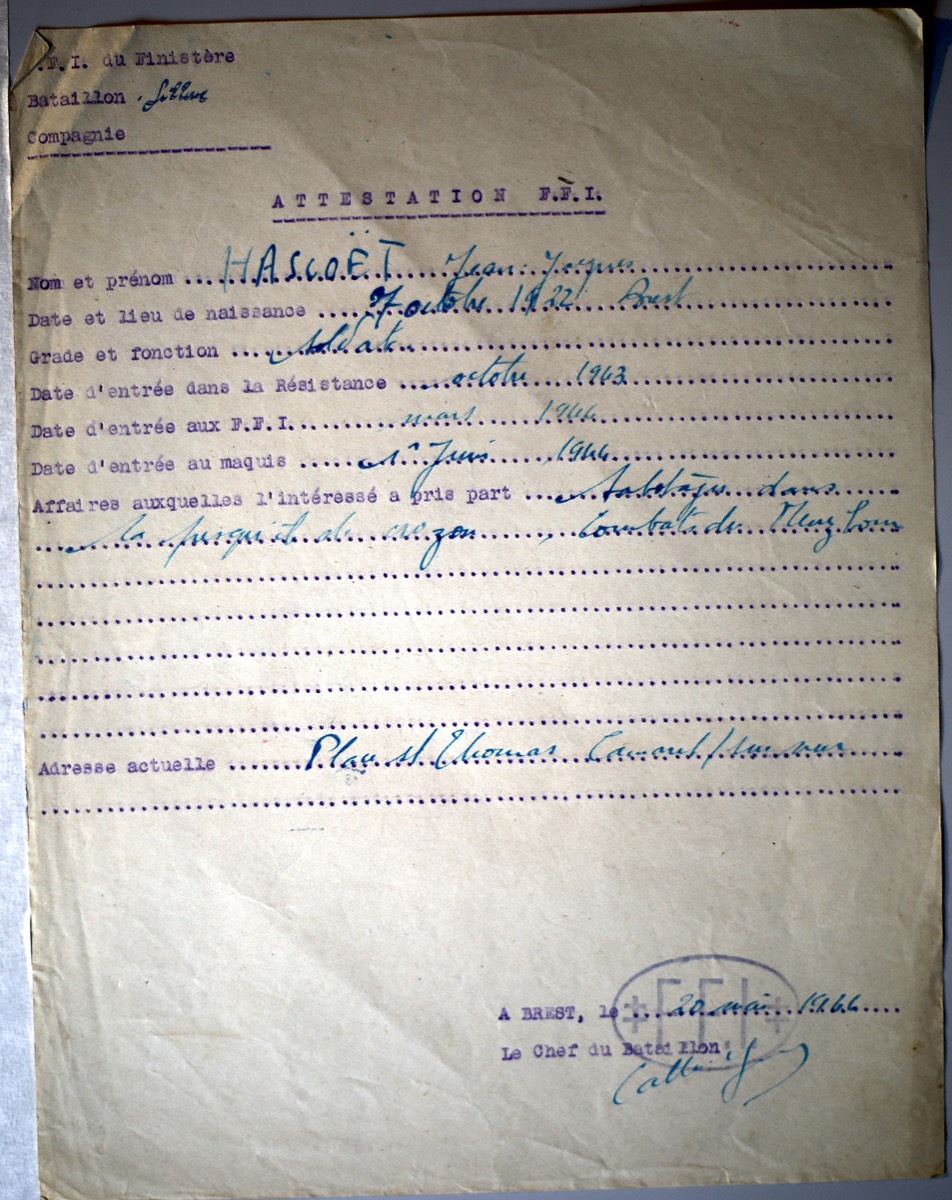 F.F.I. du Finistère
Bataillon
Compagnie
ATTESTATION F.F.I.
Nom et prénom ... HASCOËT Jean-Jacques
Date et lieu de naissance ... 27 octobre 1922 Brest
Grade et fonction ... soldat
Date d'entrée dans la Résistance ... octobre 1943
Date d'entrée aux F.F.I. ... mars 1944
Date d'entrée au maquis ... 1er Juin 1944
Affaires auxquelles l'intéressé a pris part ... Sabotages dans
la presqu'île de crozon, Combats du Menez Hom
Adresse actuelle ... Place St Thomas Camaret/sur mer
FFI
A BREST, le ... 20 mai 1944
Le Chef du Bataillon